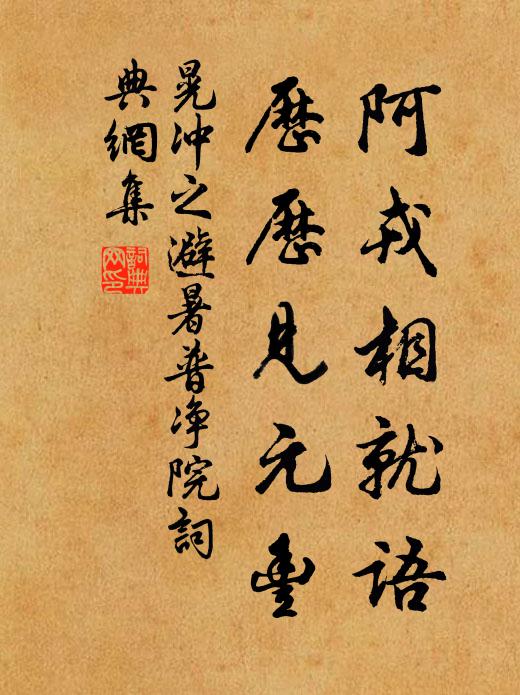 阿戎相就語
歷歷見元豐
晁冲之避暑普净院詞
典網集
詞典
网印